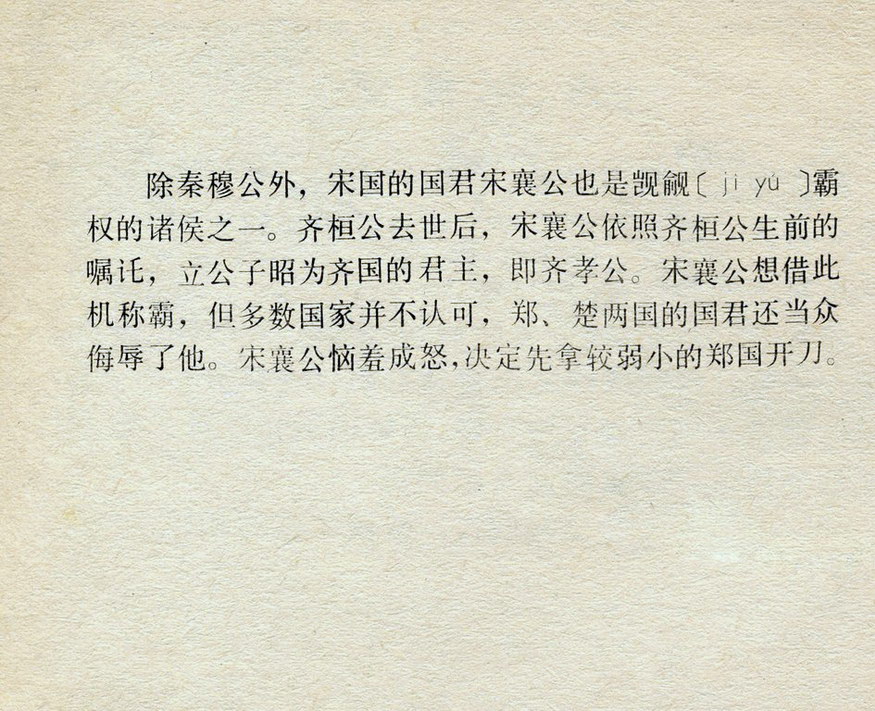 除秦穆公外，宋国的国君宋襄公也是觊觎〔 jì yú 〕霸
权的诸侯之一。齐桓公去世后，宋襄公依照齐桓公生前的
嘱讬，立公子昭为齐国的君主，即齐孝公。宋襄公想借此
机称霸，但多数国家并不认可，郑、楚两国的国君还当众
侮辱了他。宋襄公恼羞成怒，决定先拿较弱小的郑国开刀。